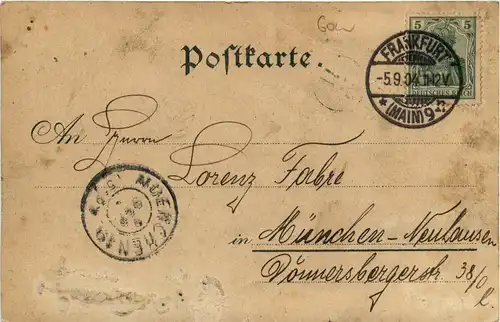 5 5
DEUTSCHES REICH
FRANKFURT
-5.9.04.11-12V.
* (MAIN) 9
Postkarte.
An Herrn
Lorenz Fabre
in München-Neuhausen
Donnersbergerstr. 38/0
MUENCHEN 19